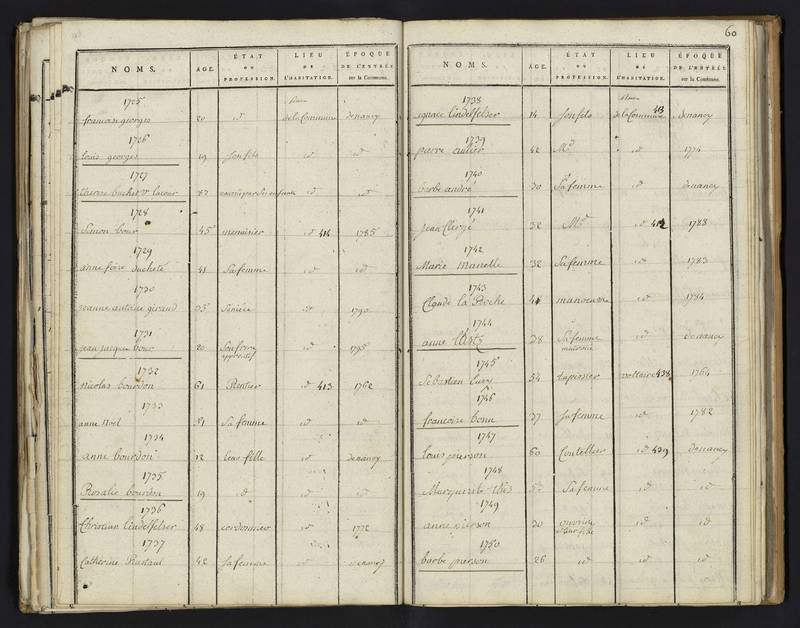 NOMS. AGE. ÉTAT OU PROFESSION. LIEU DE L'HABITATION. ÉPOQUE DE L'ENTRÉE sur la Commune.
1725
francois georges 20 id de la Commune de nancy
1726
louis georges 19 son fils id id
1727
buchet Ve lacour id id
1728
Simon bour 45 menuisier id 414 1785
1729
anne foire 41 Sa femme id id
1730
jeanne antoine giraud 35 id 1790
1731
jean jacques bour 20 Son frere id 1795
apprentif
1732
nicolas bourdon 61 Rentier id 413 1762
1733
anne noel 51 Sa femme id id
1734
anne bourdon 12 leur fille id de nancy
1735
Rosalie bourdon 19 id id id
1736
Christian lindelfelser 48 cordonnier id 1772
1737
Catherine 42 Sa femme id de nancy
60
NOMS. AGE. ÉTAT OU PROFESSION. LIEU DE L'HABITATION. ÉPOQUE DE L'ENTRÉE sur la Commune.
1738
ignace lindelfelser 14 son fils de la Commune 413 de nancy
1739
pierre 42 Md id 1774
1740
barbe andré 30 Sa femme id de nancy
1741
jean Clergé 32 Md id 412 1788
1742
Marie Manelle 32 Sa femme id 1783
1743
Claude la Roche 41 manoeuvre id 1784
1744
anne 38 Sa femme id de nancy
1745
Sebastien 54 tapissier voltaire 438 1764
1746
francoise bonn 37 sa femme id 1782
1747
louis pierson 60 Coutellier id 439 de nancy
1748
Marguerite Sa femme id id
1749
anne pierson 30 ouvriere id id
1750
barbe pierson 26 id id id